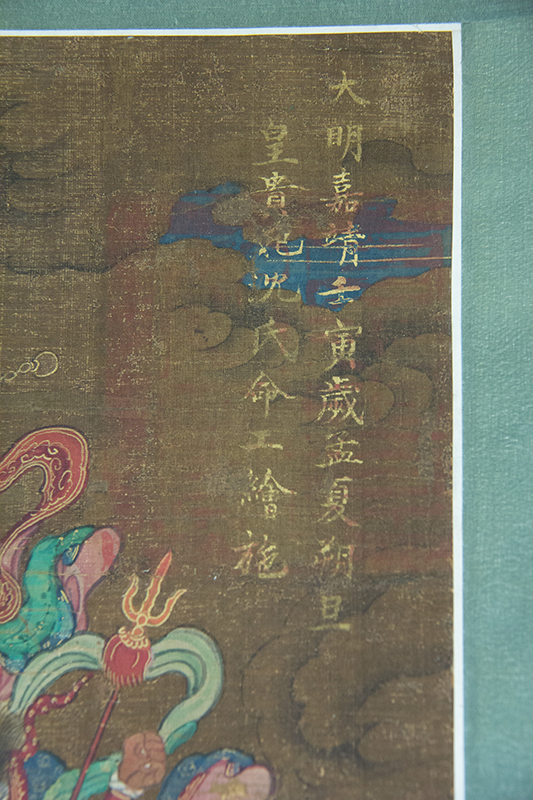 大明嘉靖壬寅歲孟夏朔旦
皇貴妃沈氏命工繪施